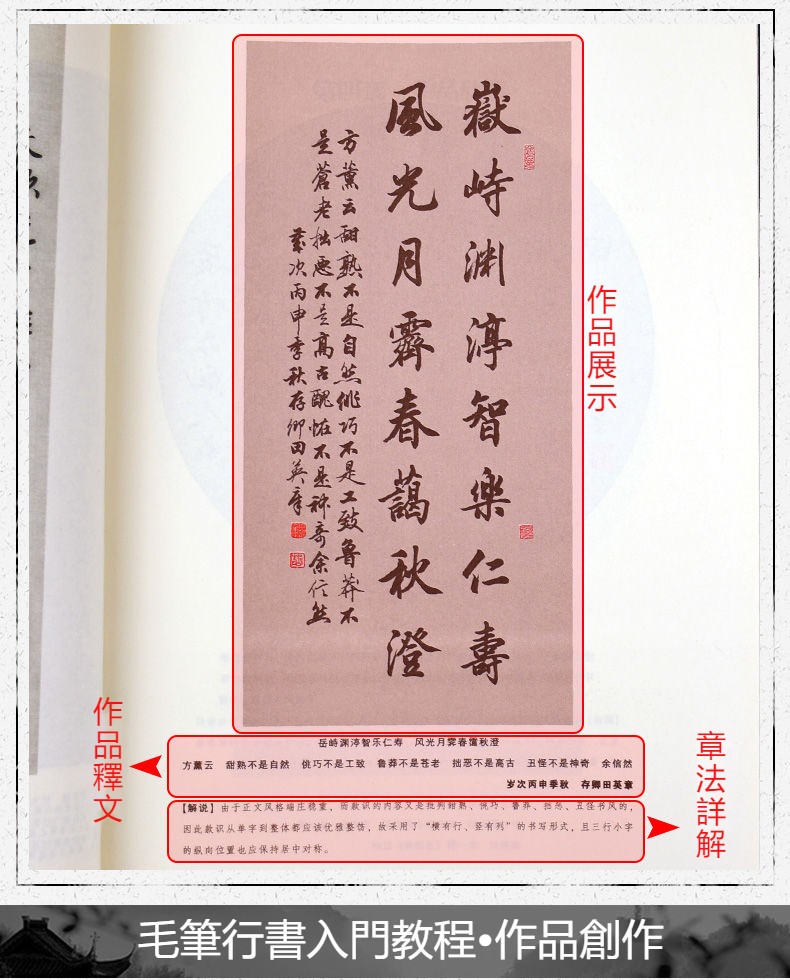 嶽峙渊渟智樂仁壽
風光月霽春藹秋澄
方薰云甜熟不是自然佻巧不是工致魯莽不
是蒼老拙惡不是高古醜怪不是神奇余信然
歲次丙申季秋存卿田英章
作品展示
岳峙渊渟智乐仁寿　风光月霁春蔼秋澄
方薰云　甜熟不是自然　佻巧不是工致　鲁莽不是苍老　拙恶不是高古　丑怪不是神奇　余信然
岁次丙申季秋　存卿田英章
作品釋文
【解说】由于正文风格端庄稳重，而款识的内容又是批判甜熟、佻巧、鲁莽、拙恶、丑怪书风的，
因此款识从单字到整体都应该优雅整饬，故采用了“横有行、竖有列”的书写形式，且三行小字
的纵向位置也应保持居中对称。
章法詳解
毛筆行書入門教程•作品創作